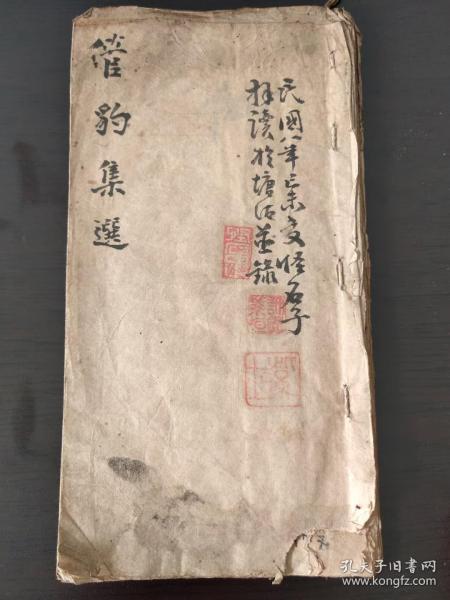 管豹集選
民國八年己未夏怪石子
拜讀於塘沽並錄
孔夫子旧书网
www.kongfz.com